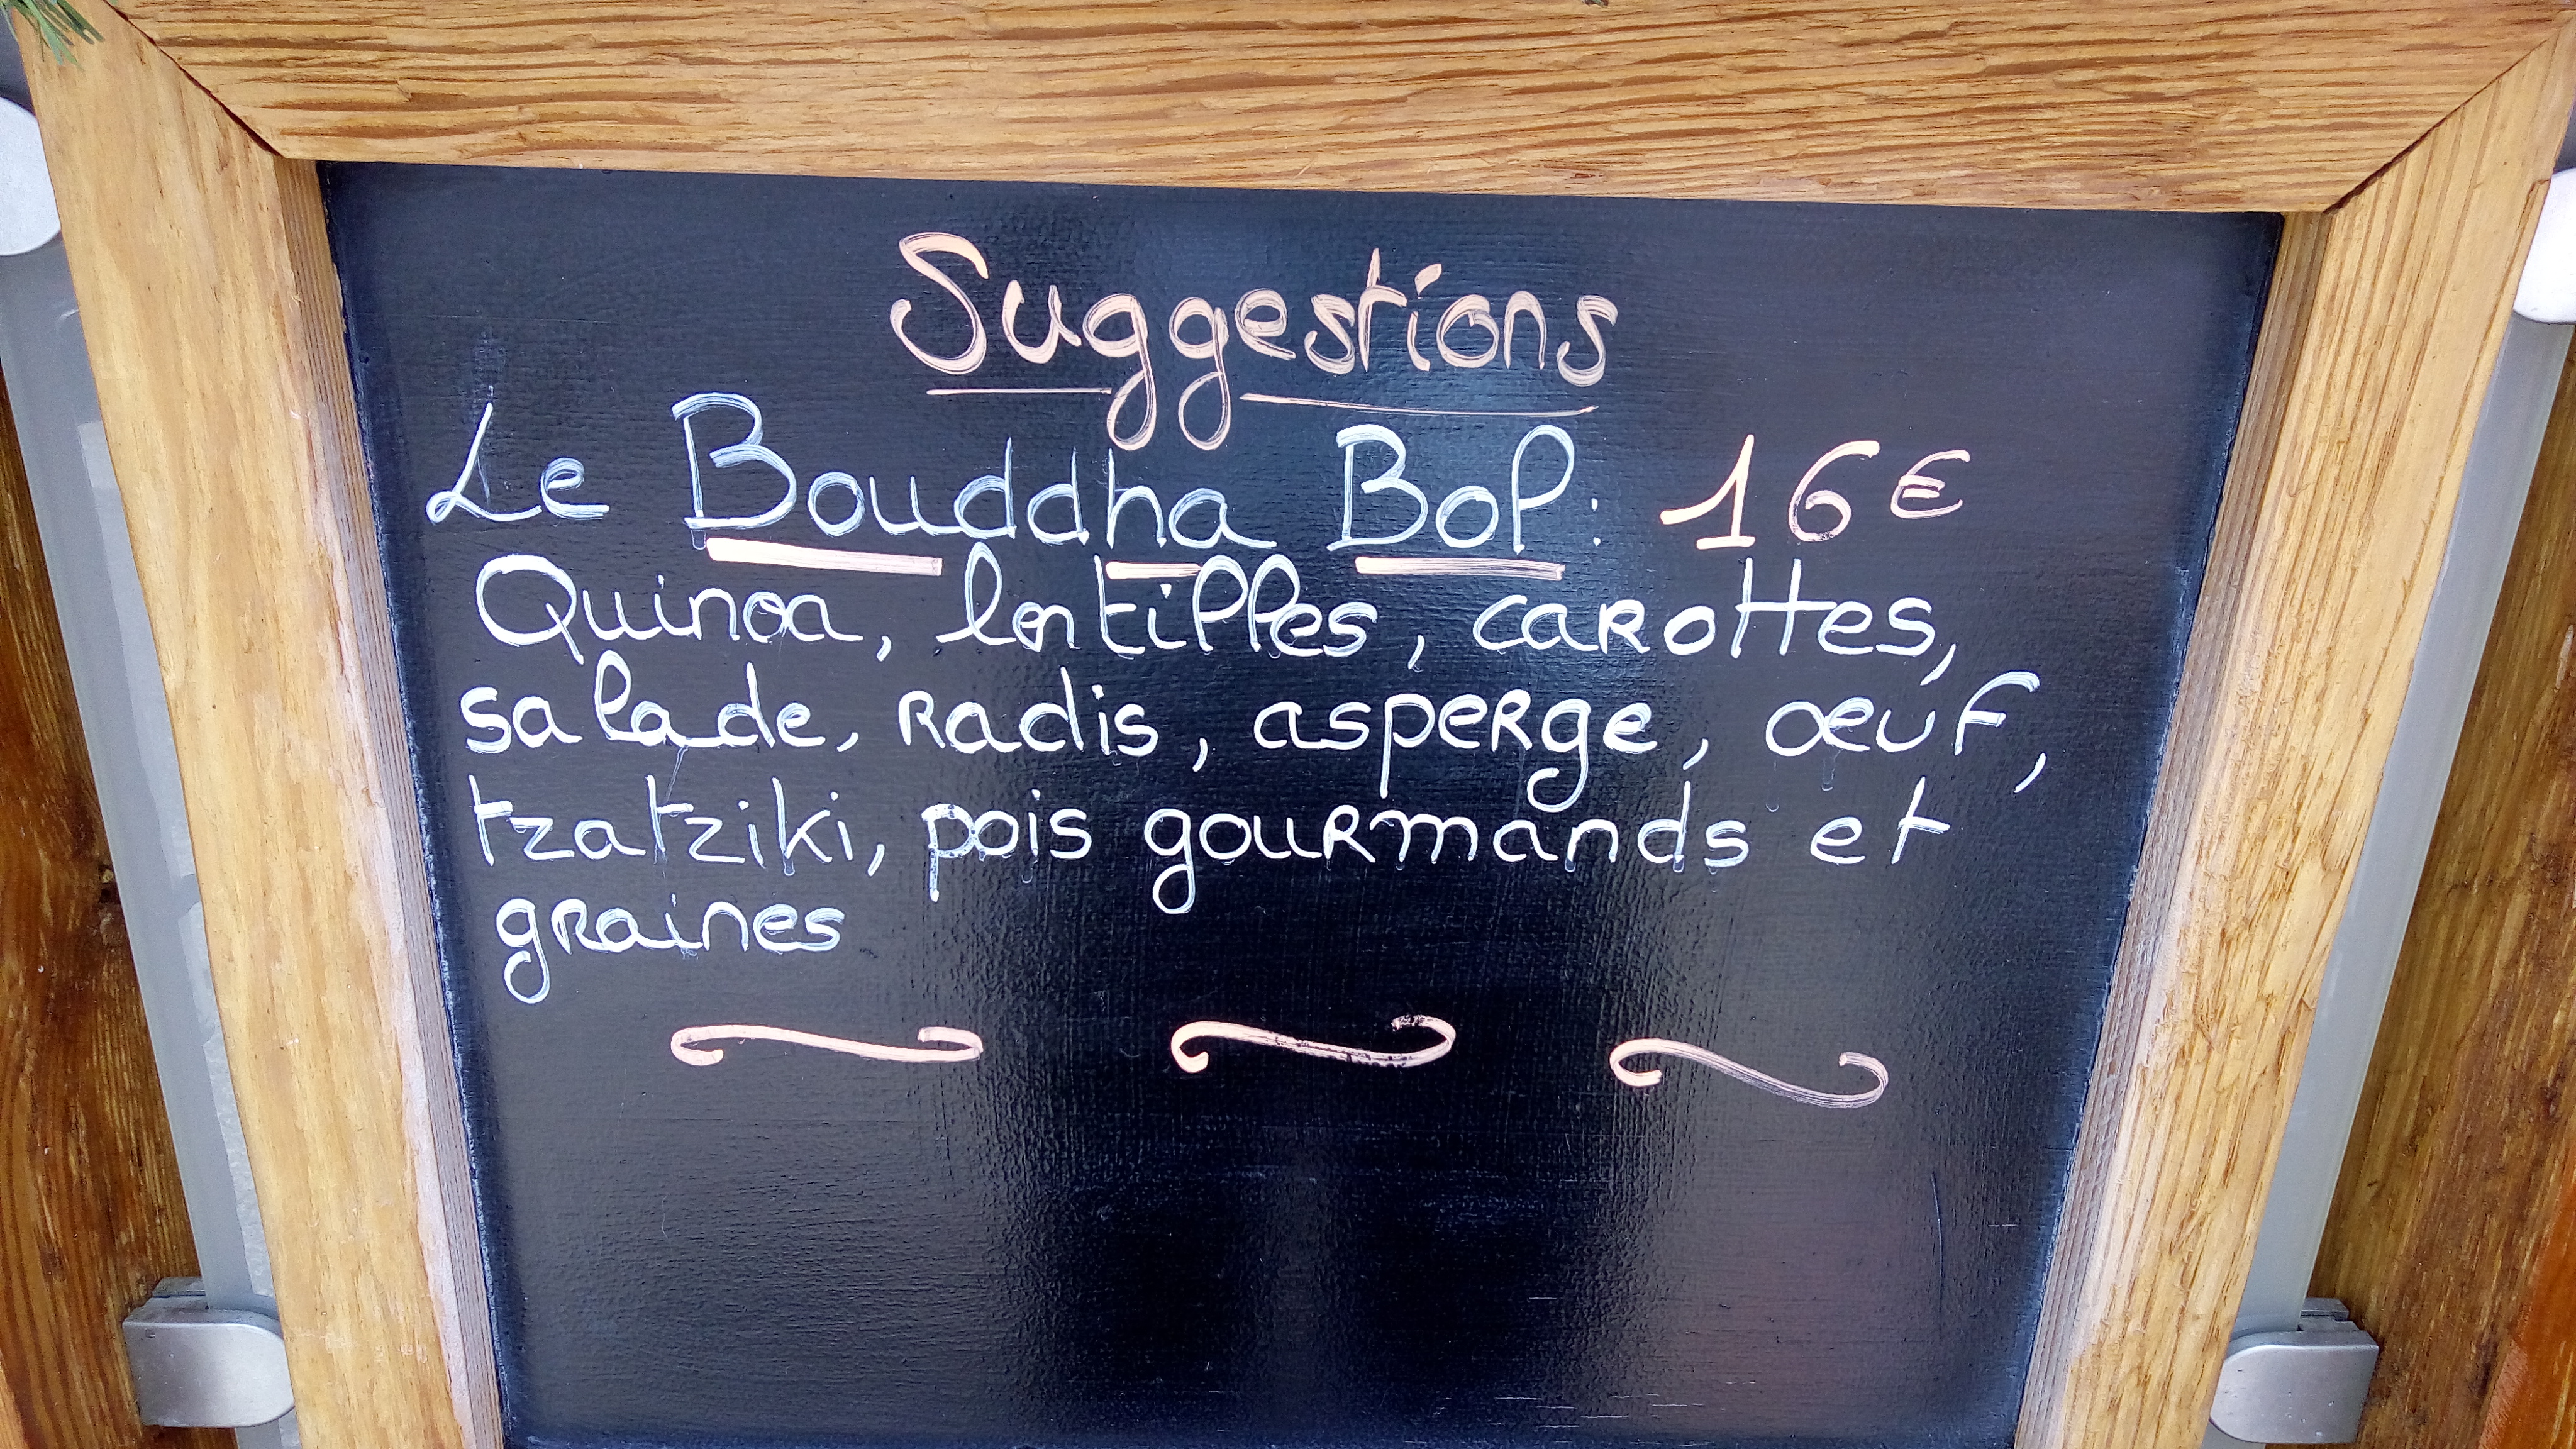 Suggestions
Le Bouddha Bol: 16€
Quinoa, lentilles, carottes,
salade, radis, asperge, œuf,
tzatziki, pois gourmands et
graines